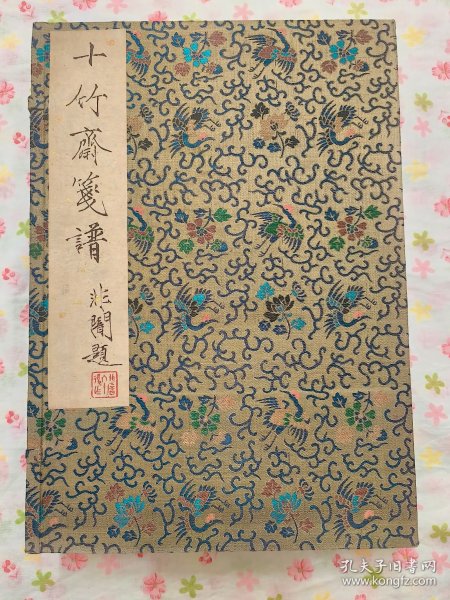 十竹齋箋譜
非闇題
孔夫子旧书网
www.kongfz.com